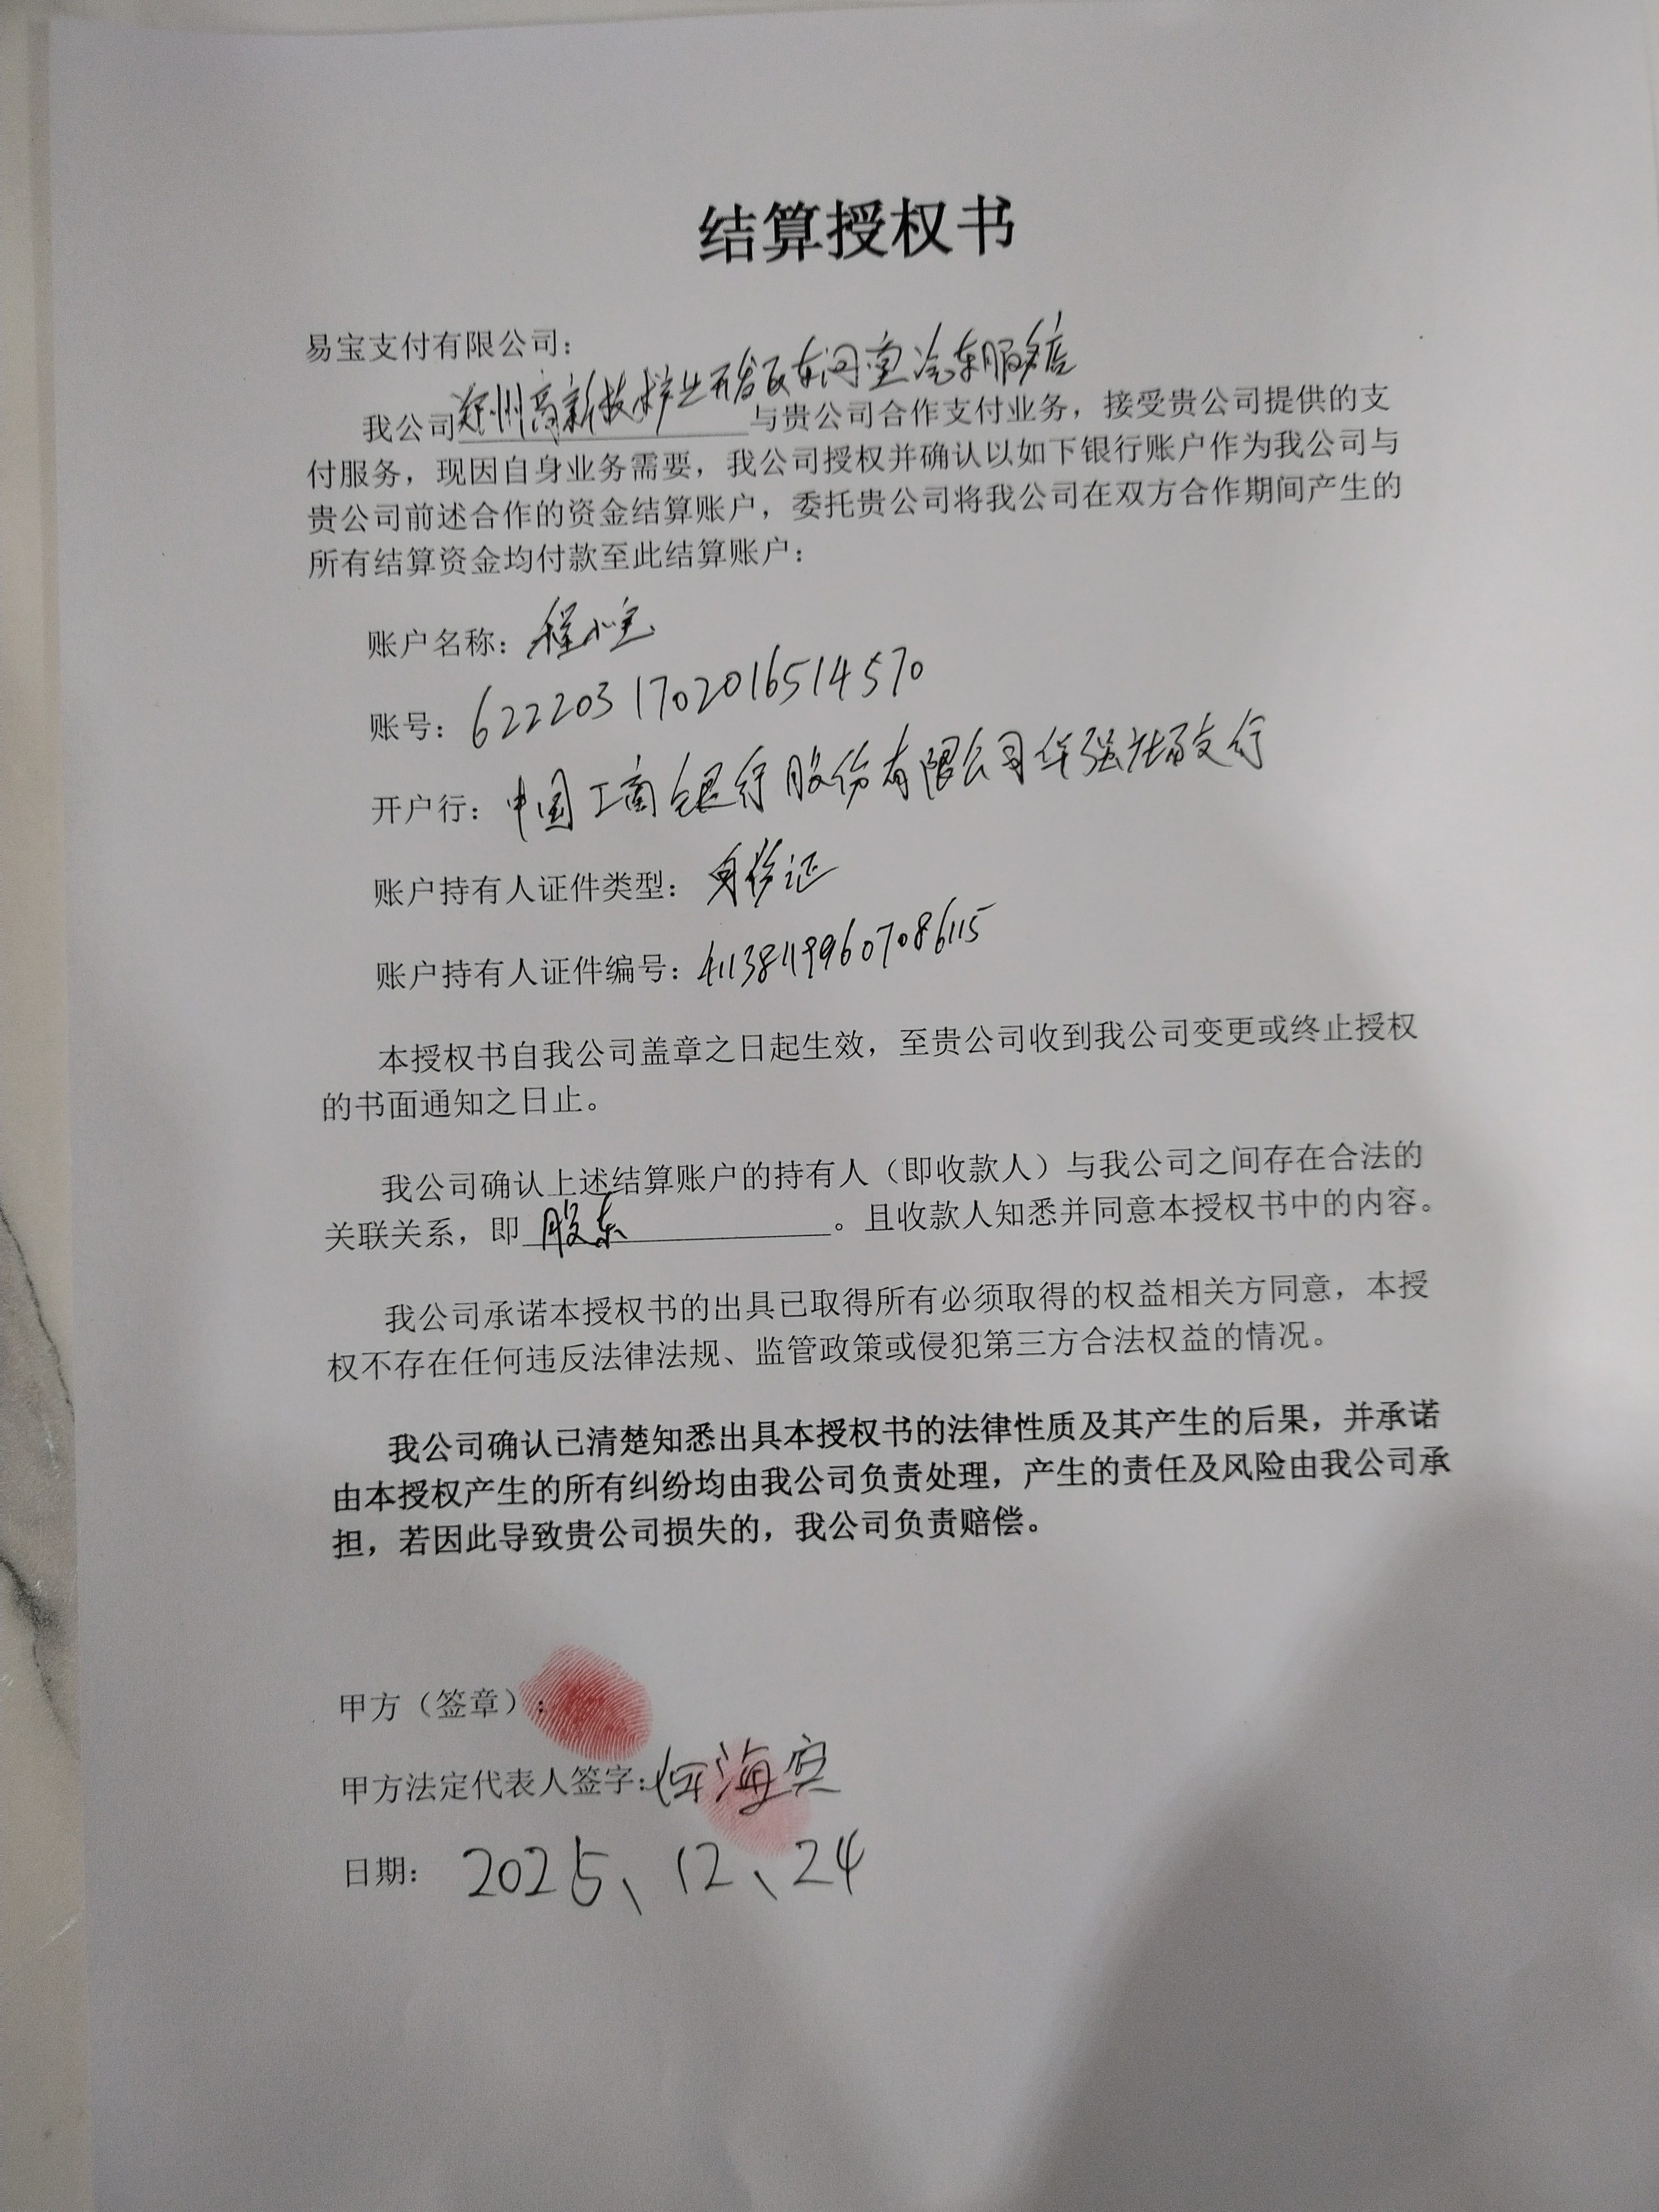 结算授权书
易宝支付有限公司：
我公司郑州高新技术产业开发区车问堂汽车服务店与贵公司合作支付业务，接受贵公司提供的支
付服务，现因自身业务需要，我公司授权并确认以如下银行账户作为我公司与
贵公司前述合作的资金结算账户，委托贵公司将我公司在双方合作期间产生的
所有结算资金均付款至此结算账户：
账户名称：程小宝
账号：6222031702016514570
开户行：中国工商银行股份有限公司华强广场支行
账户持有人证件类型：身份证
账户持有人证件编号：411381199607086115
本授权书自我公司盖章之日起生效，至贵公司收到我公司变更或终止授权
的书面通知之日止。
我公司确认上述结算账户的持有人（即收款人）与我公司之间存在合法的
关联关系，即股东。且收款人知悉并同意本授权书中的内容。
我公司承诺本授权书的出具已取得所有必须取得的权益相关方同意，本授
权不存在任何违反法律法规、监管政策或侵犯第三方合法权益的情况。
我公司确认已清楚知悉出具本授权书的法律性质及其产生的后果，并承诺
由本授权产生的所有纠纷均由我公司负责处理，产生的责任及风险由我公司承
担，若因此导致贵公司损失的，我公司负责赔偿。
甲方（签章）：
甲方法定代表人签字：海宾
日期：2025、12、24